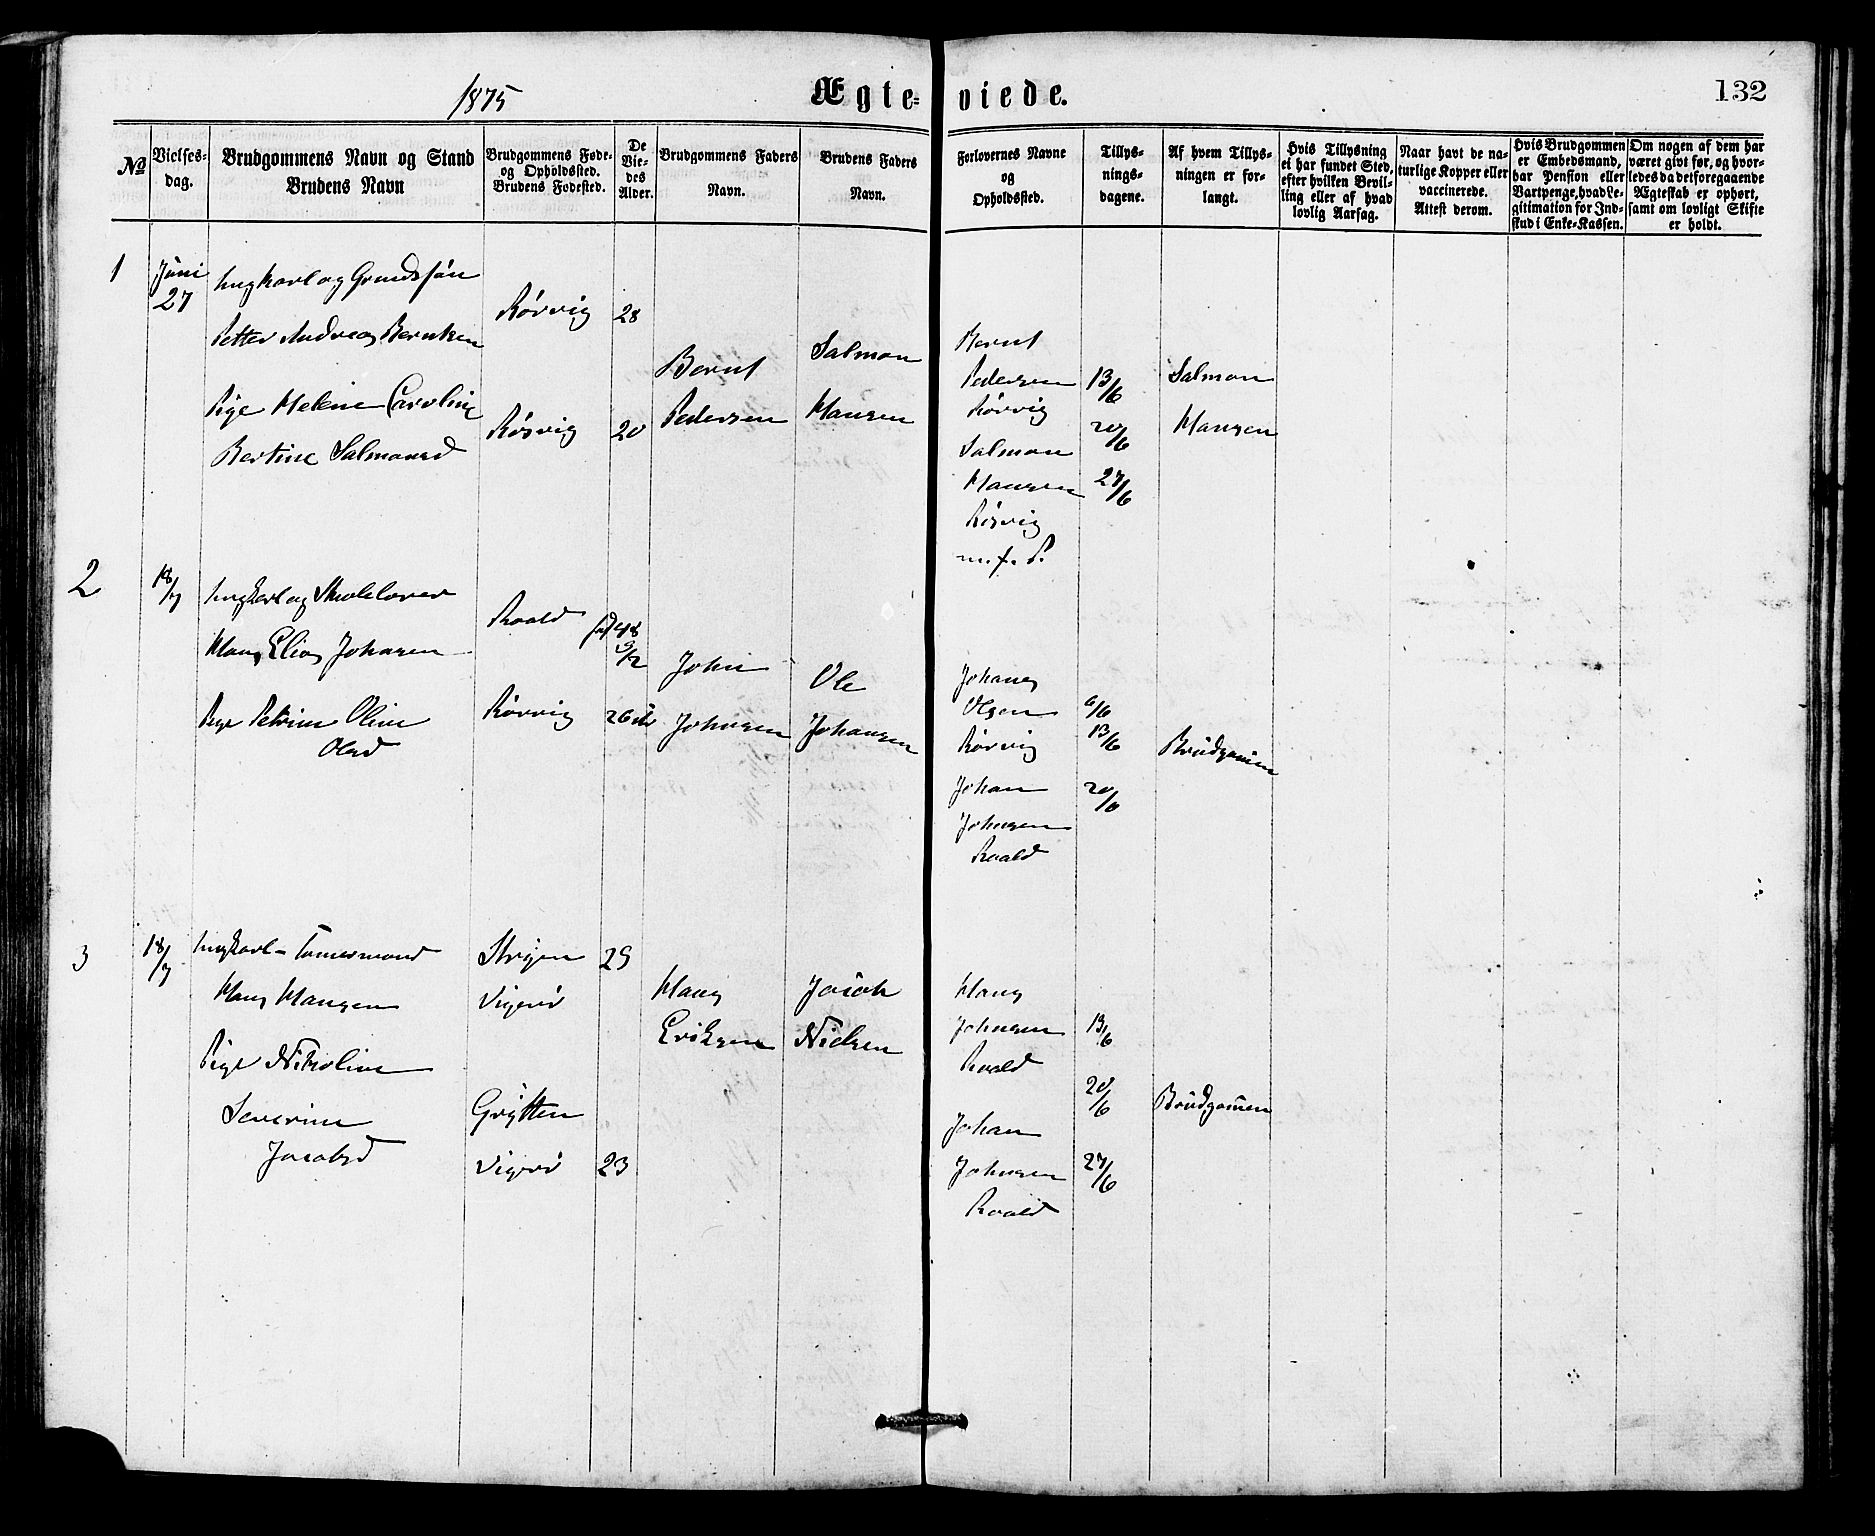 1875
Ægteviede.
132
No
Vielsesdag.
Brudgommens Navn og Stand
Brudens Navn
Brudgommens Føde-
og Opholdssted.
Brudens Fødested.
De
Vie-
des
Alder.
Brudgommens Faders
Navn.
Brudens Faders
Navn.
Forlovernes Navne
og
Opholdssted.
Tillys-
nings-
dagene.
Af hvem Tillys-
ningen er for-
langt.
Hvis Tillysning
ei har fundet Sted,
efter hvilken Bevil-
ling eller af hvad
lovlig Aarsag.
Naar havt de na-
turlige Kopper eller
vaccinerede.
Attest derom.
Hvis Brudgommen
er Embedsmand,
har Pension eller
Vartpenge, hvad Le-
gitimation for Ind-
skud i Enke-Kassen.
Om nogen af dem har
været givt før, og hvor-
ledes da det foregaaende
Ægteskab er ophørt,
samt om lovligt Skifte
er holdt.
1
Juni
27
Ungkarl og
Petter Andreas Berntsen
Rørvig
28
Pige Helene Caroline
Bertine Salmonsd
Røsvig
20
Bernt
Pedersen
Salmon
Hansen
Bernt
Pedersen
Rørvig
Salmon
Hansen
Røsvig
13/6
20/6
27/6
Salmon
Hansen
2
18/7
Ungkarl og Skolelærer
Hans Elias Johnsen
Roald
48
Pige Petrine Oline
Olsd
Rørvig
26
John
Johnsen
Ole
Johansen
Johans
Olsen
Rørvig
Johan
Johnsen
Roald
6/6
13/6
20/6
Brudgomen
3
18/7
Ungkarl -
Hans Hansen
Vigerø
25
Pige Nikoline
Severine
Jacobsd
Grytten
Vigerø
23
Hans
Eriksen
Jacob
Nielsen
Hans
Johnsen
Roald
Johan
Johnsen
Roald
13/6
20/6
27/6
Brudgomen